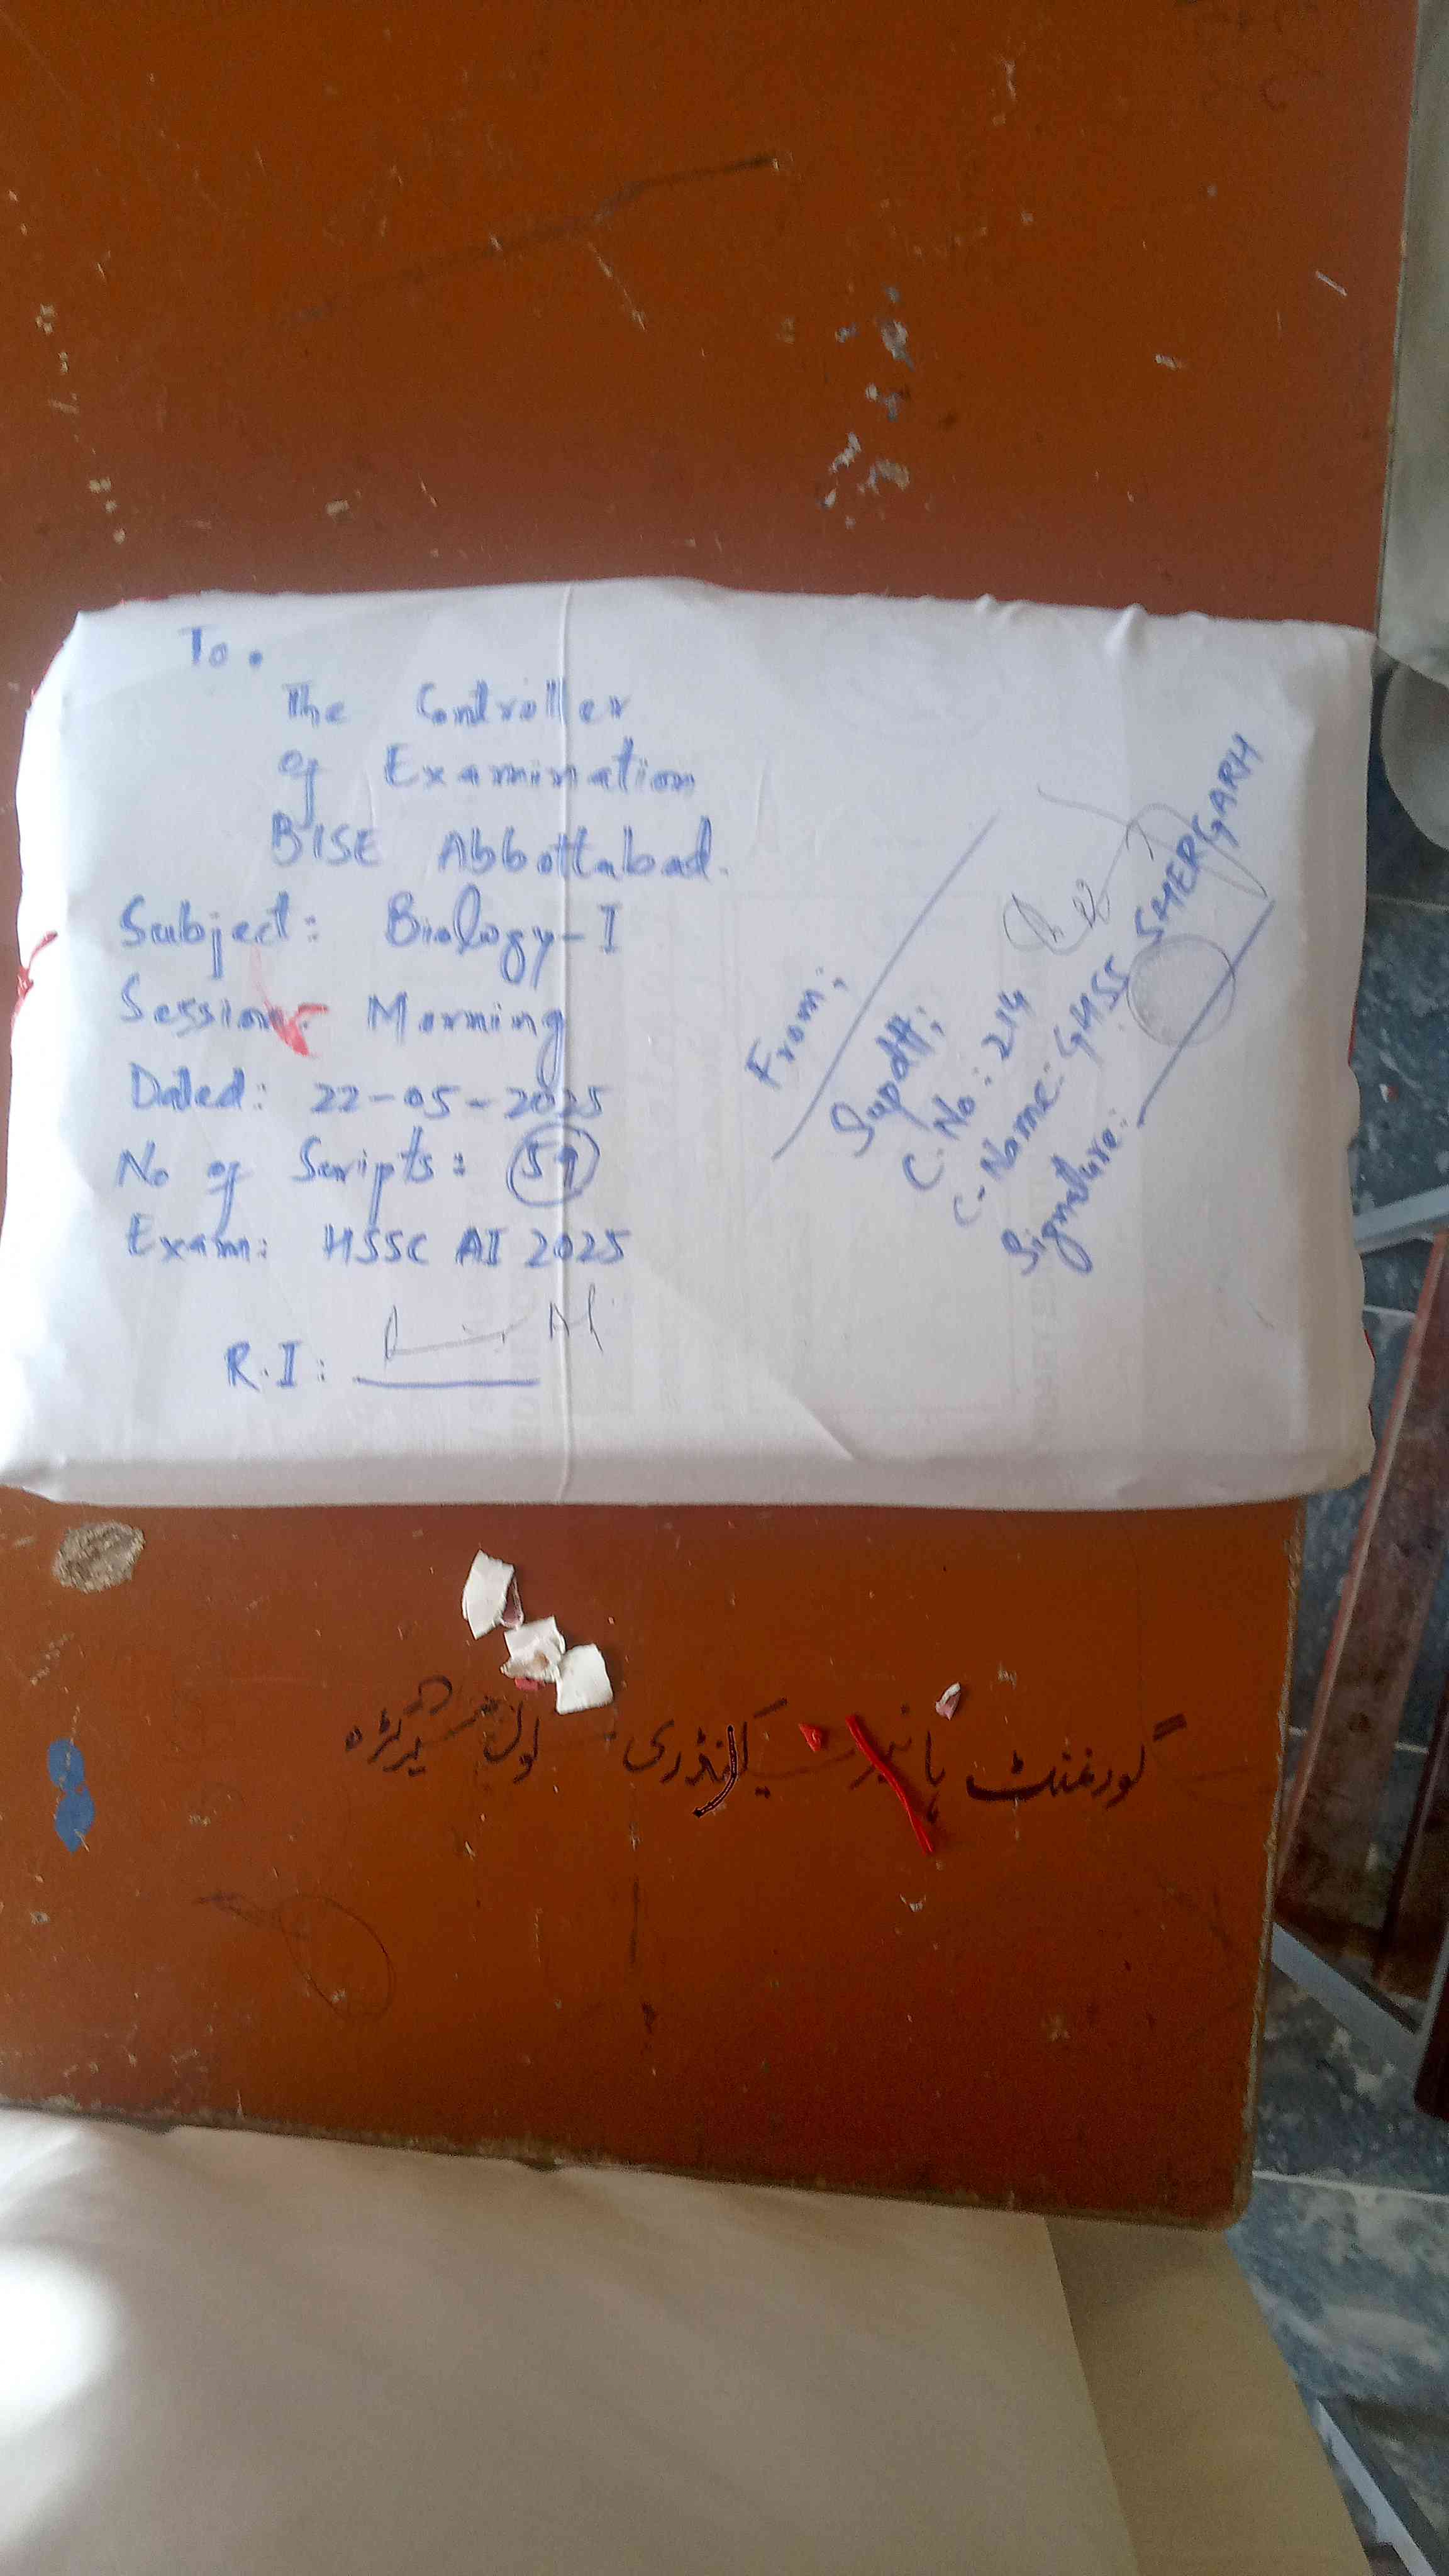 To.
The Controller
of Examination
BISE Abbottabad.
Subject: Biology-I
Session:- Morning
Dated: 22-05-2025
No of Scripts: 59
Exam: HSSC AI 2025
R.I:
From;
Supdtt;
C.No: 214
C-Name: GHSS SHERGARH
Signature:
گورنمنٹ ہائیر سیکنڈری سکول شیرگڑھ